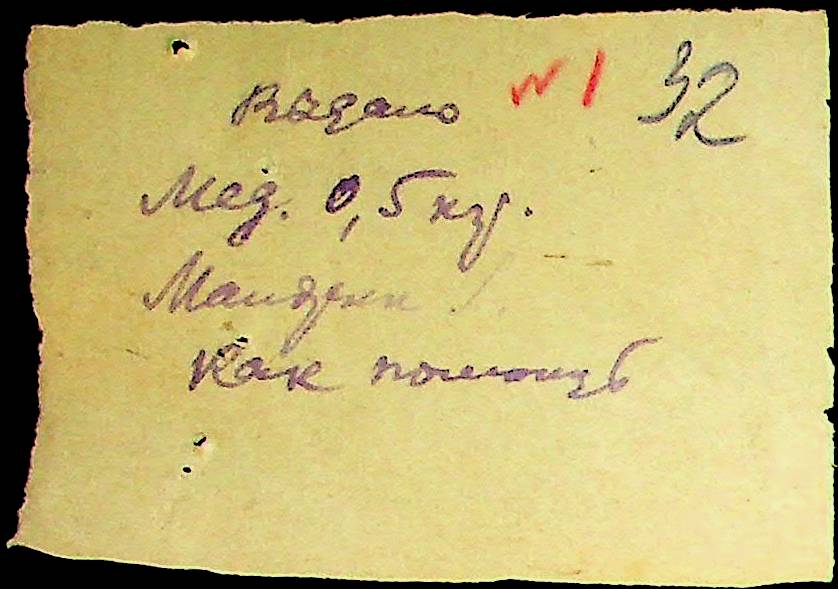 Выдано №1 32
Мед. 0,5 кг.
как помощь